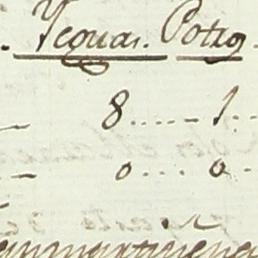 Yeguas. Potros
8...... 1..
0.... 0..